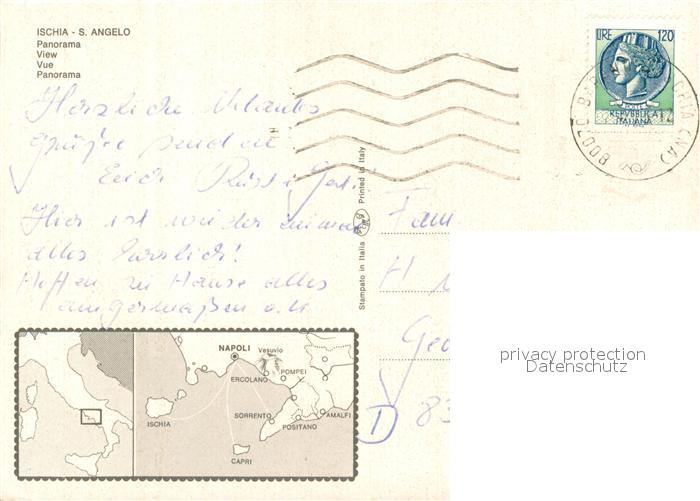 ISCHIA - S. ANGELO
Panorama
View
Vue
Panorama
LIRE 120
POSTE
REPVBBLICA
ITALIANA
80070 B
Herzliche Urlaubs
grüße senden
Euch
Hier ist wieder einmal
alles herrlich!
Hoffen zu Hause alles
einigermaßen o.k
Stampato in Italia
Printed in Italy
Fam
H
Geo
D 83
privacy protection
Datenschutz
NAPOLI
Vesuvio
ERCOLANO
POMPEI
ISCHIA
SORRENTO
POSITANO
AMALFI
CAPRI